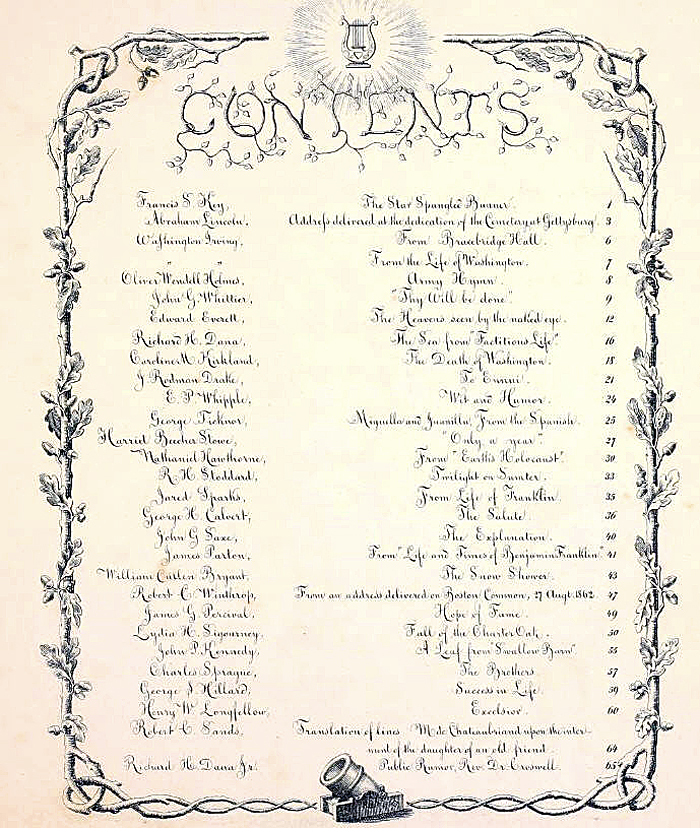 CONTENTS
Francis S. Key, The Star Spangled Banner. 1
Abraham Lincoln, Addreſs delivered at the dedication of the Cemetery at Gettysburg. 3
Waſhington Irving, From Bracebridge Hall. 6
" " From the Life of Washington. 7
Oliver Wendell Holmes, Army Hymn. 8
John G. Whittier, "Thy Will be done". 9
Edward Everett, The Heavens seen by the naked eye. 12
Richard H. Dana, The Sea from "Factitious Life" 16
Caroline M. Kirkland, The Death of Washington. 18
J. Rodman Drake, To Ennui. 21
E. P. Whipple, Wit and Humor. 24
George Ticknor, Miguella and Juanilla, From the Spanish. 25
Harried Beecher Stowe, "Only a year". 27
Nathaniel Hawthorne, From "Earth's Holocaust". 30
R. H. Stoddard, Twilight on Sumter. 33
Jared Sparks, From Life of Franklin. 35
George H. Calvert, The Salute. 36
John G. Saxe, The Explanation. 40
James Parton, From "Life and Times of Benjamin Franklin" 41
William Cullen Bryant, The Snow Shower. 43
Robert C. Winthrop, From an address delivered on Boston Common, 27 Augt. 1862 47
James G. Percival, Hope of Fame. 49
Lydia H. Sigourney, Fall of the Charter Oak. 50
John P. Kennedy, A Leaf from "Swallow Barn". 55
Charles Sprague, The Brothers. 57
George S. Hillard, Success in Life. 59
Henry W. Longfellow, Excelsior. 60
Robert C. Sands, Translation of lines M. de Chateaubriand upon the inter-
ment of the daughter of an old friend. 64
Richard H. Dana Jr. Public Rumor, Rev. Dr. Croswell. 65